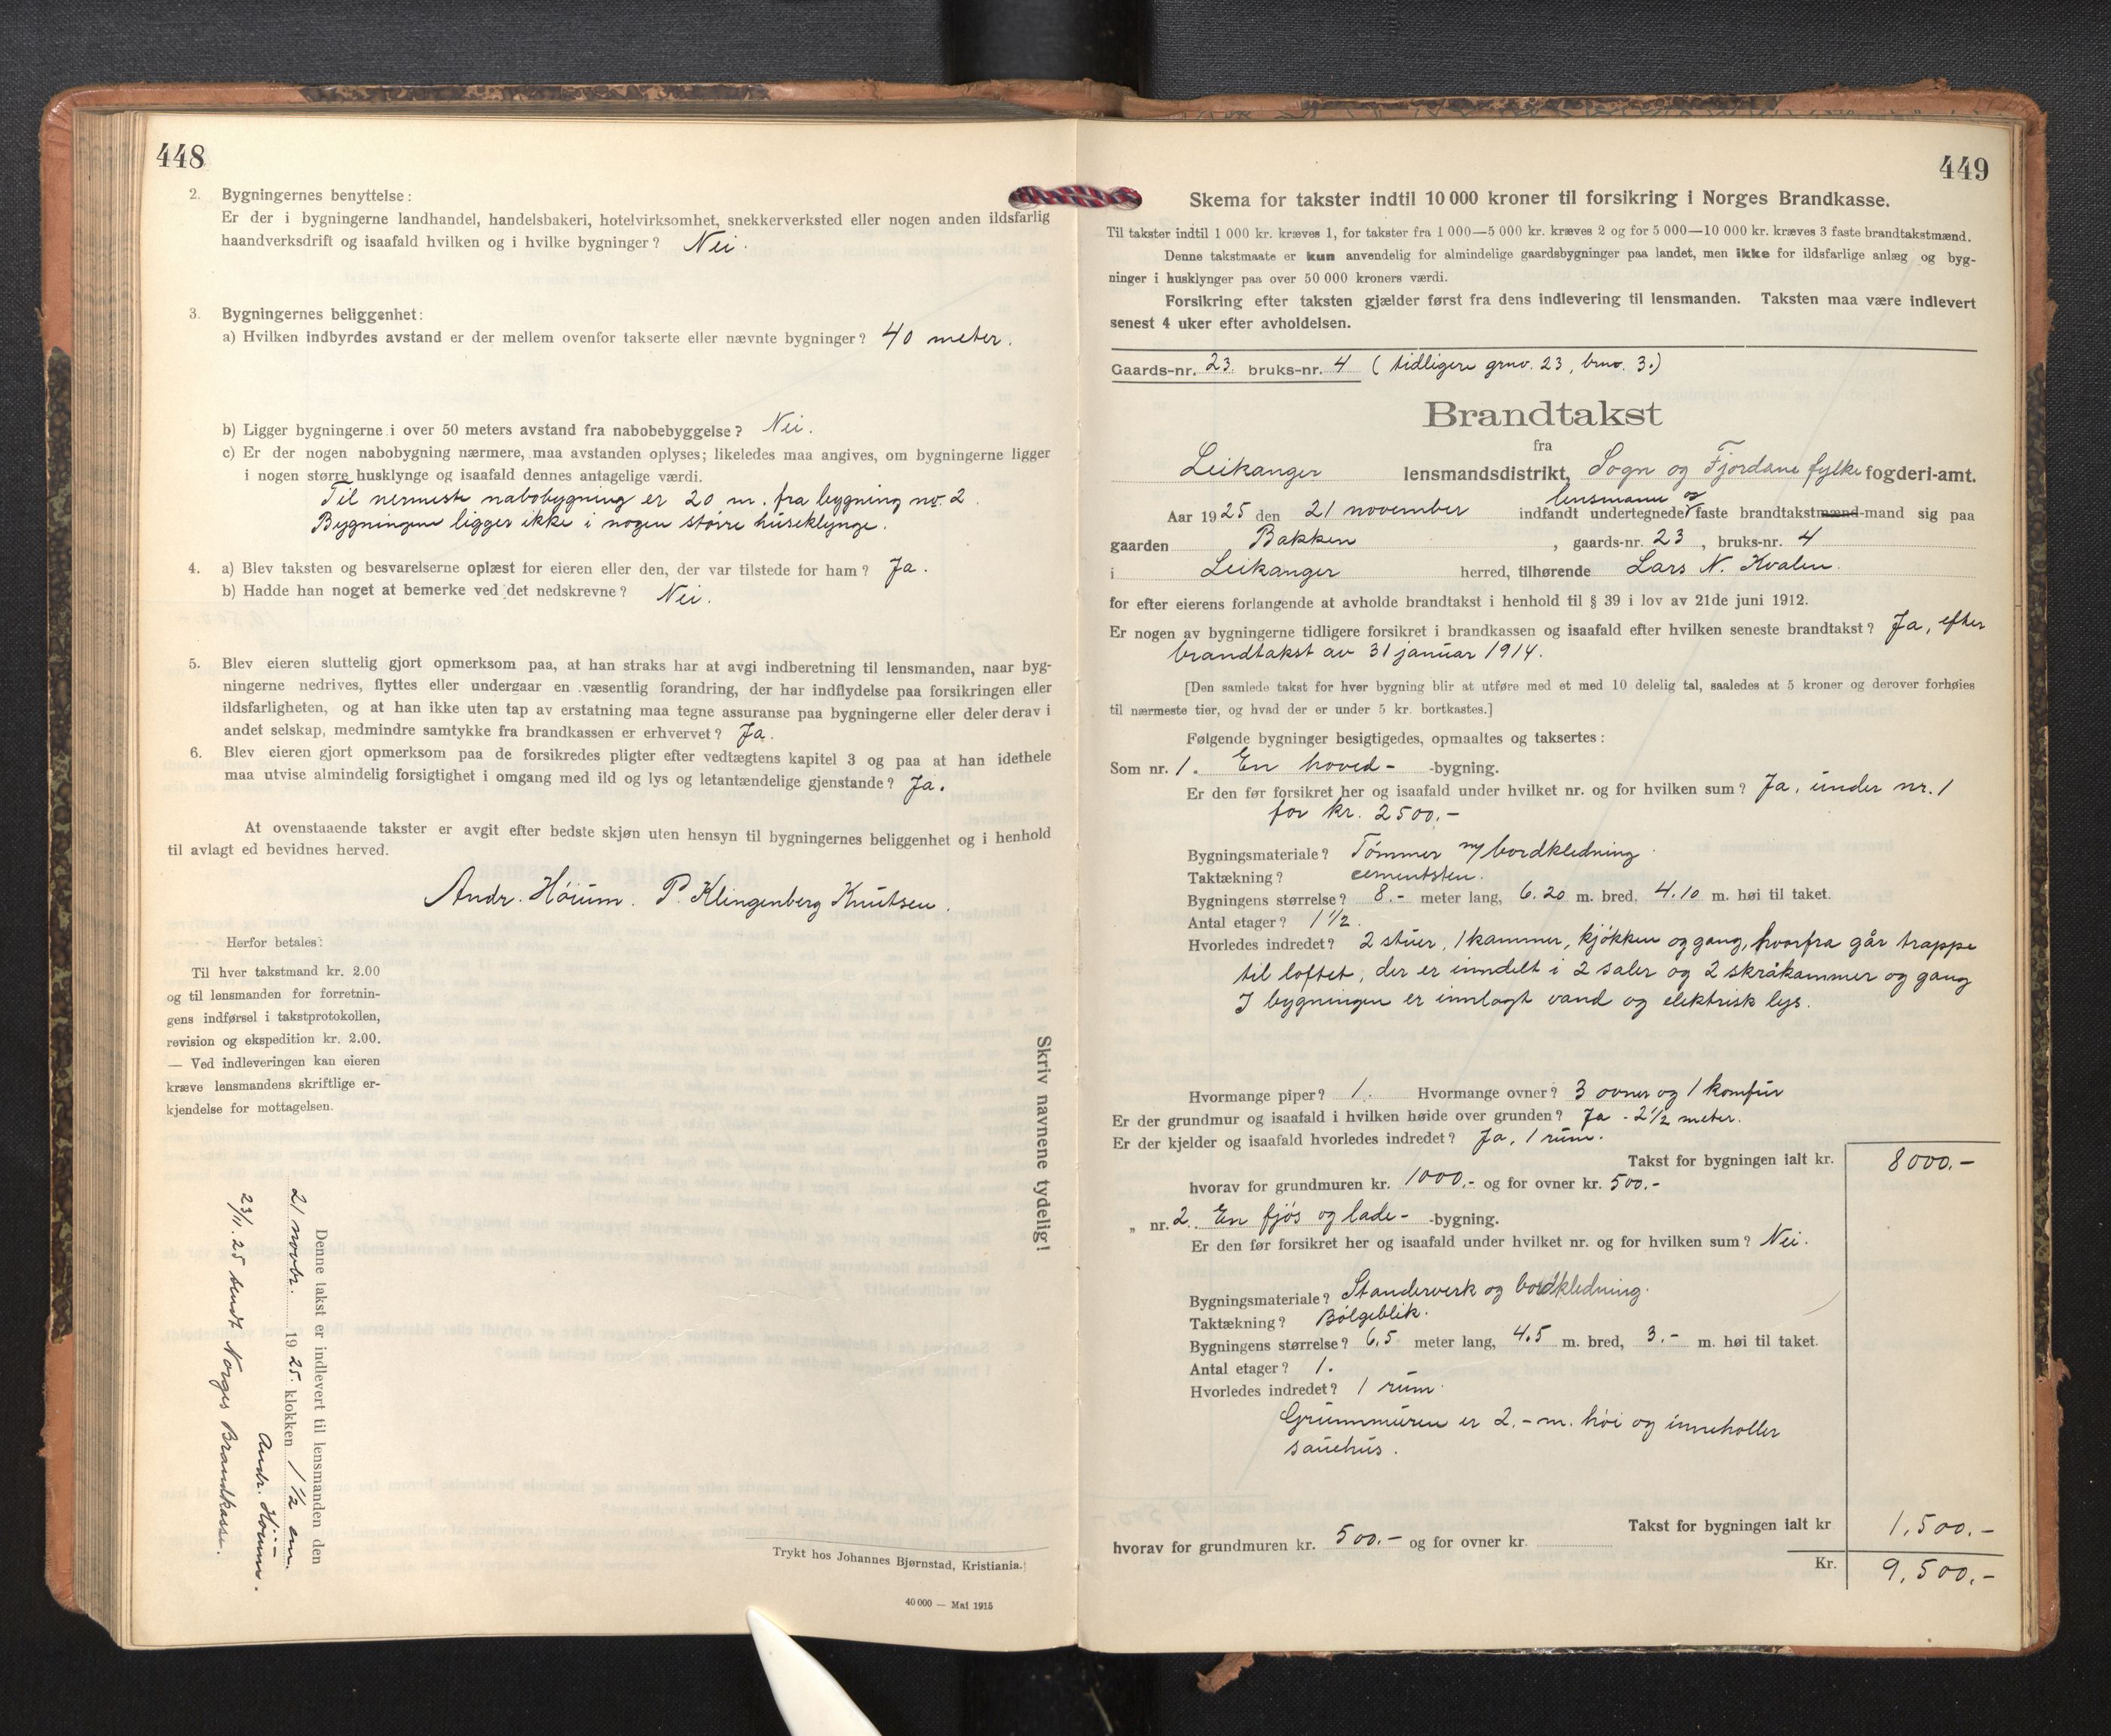 448
2. Bygningernes benyttelse:
Er der i bygningerne landhandel, handelsbakeri, hotelvirksomhet, snekkerverksted eller nogen anden ildsfarlig
haandverksdrift og isaafald hvilken og i hvilke bygninger? Nei.
3. Bygningernes beliggenhet:
a) Hvilken indbyrdes avstand er der mellem ovenfor takserte eller nævnte bygninger? 40 meter.
b) Ligger bygningerne i over 50 meters avstand fra nabobebyggelse? Nei.
c) Er der nogen nabobygning nærmere, maa avstanden oplyses; likeledes maa angives, om bygningerne ligger
i nogen større husklynge og isaafald dennes antagelige værdi.
Til nermeste nabobygning er 20 m. fra bygning no. 2.
Bygningene ligger ikke i nogen større huseklynge.
4. a) Blev taksten og besvarelserne oplæst for eieren eller den, der var tilstede for ham? Ja.
b) Hadde han noget at bemerke ved det nedskrevne? Nei.
5. Blev eieren sluttelig gjort opmerksom paa, at han straks har at avgi indberetning til lensmanden, naar byg-
ningerne nedrives, flyttes eller undergaar en væsentlig forandring, der har indflydelse paa forsikringen eller
ildsfarligheten, og at han ikke uten tap av erstatning maa tegne assuranse paa bygningerne eller deler derav i
andet selskap, medmindre samtykke fra brandkassen er erhvervet? Ja.
6. Blev eieren gjort opmerksom paa de forsikredes pligter efter vedtægtens kapitel 3 og paa at han idethele
maa utvise almindelig forsigtighet i omgang med ild og lys og letantændelige gjenstande? Ja.
At ovenstaaende takster er avgit efter bedste skjøn uten hensyn til bygningernes beliggenhet og i henhold
til avlagt ed bevidnes herved.
Andr. Höium. P. Klingenberg Knutsen.
Herfor betales:
Til hver takstmand kr. 2.00
og til lensmanden for forretnin-
gens indførsel i takstprotokollen,
revision og ekspedition kr. 2.00.
— Ved indleveringen kan eieren
kræve lensmandens skriftlige er-
kjendelse for mottagelsen.
Skriv navnene tydelig!
Denne takst er indlevert til lensmanden den
21 novbr. 1925. klokken 1 1/2 em.
Andr. Höium.
23/11.25 sendt Norges Brandkasse.
Trykt hos Johannes Bjørnstad, Kristiania.
40 000 — Mai 1915
449
Skema for takster indtil 10 000 kroner til forsikring i Norges Brandkasse.
Til takster indtil 1 000 kr. kræves 1, for takster fra 1 000—5 000 kr. kræves 2 og for 5 000—10 000 kr. kræves 3 faste brandtakstmænd.
Denne takstmaate er kun anvendelig for almindelige gaardsbygninger paa landet, men ikke for ildsfarlige anlæg og byg-
ninger i husklynger paa over 50 000 kroners værdi.
Forsikring efter taksten gjælder først fra dens indlevering til lensmanden. Taksten maa være indlevert
senest 4 uker efter avholdelsen.
Gaards-nr. 23. bruks-nr. 4 (tidligere grnv. 23, brnv. 3.)
Brandtakst
fra
Leikanger lensmandsdistrikt, Sogn og Fjordane fylke fogderi-amt.
lensmann og
Aar 1925 den 21 november indfandt undertegnede faste brandtakstmænd-mand sig paa
gaarden Bakken, gaards-nr. 23, bruks-nr. 4
i Leikanger herred, tilhørende Lars N. Kvalen.
for efter eierens forlangende at avholde brandtakst i henhold til § 39 i lov av 21de juni 1912.
Er nogen av bygningerne tidligere forsikret i brandkassen og isaafald efter hvilken seneste brandtakst? Ja, efter
brandtakst av 31 januar 1914.
[Den samlede takst for hver bygning blir at utføre med et med 10 delelig tal, saaledes at 5 kroner og derover forhøies
til nærmeste tier, og hvad der er under 5 kr. bortkastes.]
Følgende bygninger besigtigedes, opmaaltes og taksertes:
Som nr. 1. En hoved- -bygning.
Er den før forsikret her og isaafald under hvilket nr. og for hvilken sum? Ja, under nr. 1
for kr. 2500.-
Bygningsmateriale? Tømmer m/bordkledning.
Taktækning? cementsten.
Bygningens størrelse? 8.- meter lang, 6.20 m. bred, 4.10 m. høi til taket.
Antal etager? 1 1/2.
Hvorledes indredet? 2 stuer, 1 kammer, kjøkken og gang, hvorfra går trappe
til loftet, der er inndelt i 2 saler og 2 skråkammer og gang
I bygningen er innlagt vand og elektrisk lys.
Hvormange piper? 1. Hvormange ovner? 3 ovner og 1 komfur
Er der grundmur og isaafald i hvilken høide over grunden? Ja - 2 1/2 meter.
Er der kjelder og isaafald hvorledes indredet? Ja, 1 rum.
Takst for bygningen ialt kr. 8000.-
hvorav for grundmuren kr. 1000.- og for ovner kr. 500.-
„ nr. 2. En fjøs og lade- -bygning.
Er den før forsikret her og isaafald under hvilket nr. og for hvilken sum? Nei.
Bygningsmateriale? Standerverk og bordkledning.
Taktækning? Bølgeblik.
Bygningens størrelse? 6,5 meter lang, 4.5 m. bred, 3.- m. høi til taket.
Antal etager? 1.
Hvorledes indredet? 1 rum.
Grunnmuren er 2.- m. høi og inneholler
sauehus.
Takst for bygningen ialt kr 1,500.-
hvorav for grundmuren kr. 500.- og for ovner kr.
Kr. 9,500.-